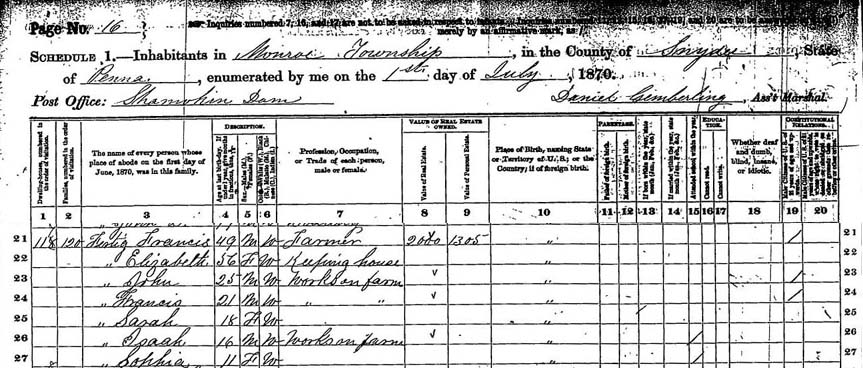 Page No. 16
Inquiries numbered 7, 16, and 17 are not to be asked in respect to infants. Inquiries numbered
merely by an affirmative mark, as /.
SCHEDULE 1.—Inhabitants in Monroe Township, in the County of Snyder, State
of Penna., enumerated by me on the 1st day of July, 1870.
Post Office: Shamokin Dam Daniel Gemberling, Ass't Marshal.
Dwelling-houses, numbered in the order of visitation.
Families, numbered in the order of visitation.
The name of every person whose place of abode on the first day of June, 1870, was in this family.
DESCRIPTION.
Age at last birth-day.
Sex.—Males (M.), Females (F.)
Profession, Occupation, or Trade of each person, male or female.
VALUE OF REAL ESTATE OWNED.
Value of Real Estate.
Value of Personal Estate.
Place of Birth, naming State or Territory of U. S.; or the Country, if of foreign birth.
PARENTAGE.
Father of foreign birth.
Mother of foreign birth.
EDUCATION.
Attended school within the year.
Cannot read.
Cannot write.
Whether deaf and dumb, blind, insane, or idiotic.
CONSTITUTIONAL RELATIONS.
1 2 3 4 5 6 7 8 9 10 11 12 13 14 15 16 17 18 19 20
21 118 120 Francis 49 M W Farmer 1305 " / 21
22 " Elizabeth 56 F W Keeping house " 22
23 " John 25 M W Works on farm " / 23
24 " Francis 21 M W " " " / 24
25 " Sarah 18 F W " 25
26 " Isaah 16 M W Works on farm " / 26
27 " Sophia 11 F W " / 27